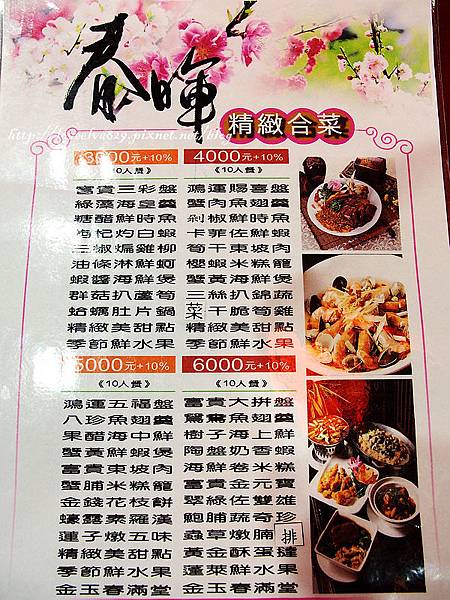 春暉
精緻合菜
3000元+10%
《10人餐》
富貴三彩盤
綠藻海皇羹
糖醋鮮時魚
枸杞灼白蝦
三椒煸雞柳
油條淋鮮蚵
蝦醬海鮮煲
群菇扒蘆筍
蛤蠣肚片鍋
精緻美甜點
季節鮮水果
4000元+10%
《10人餐》
鴻運賜喜盤
蟹肉魚翅羹
剁椒鮮時魚
卡菲佐鮮蝦
筍干東坡肉
櫻蝦米糕籠
蟹黃海鮮煲
三絲扒錦蔬
菜干脆筍雞
精緻美甜點
季節鮮水果
5000元+10%
《10人餐》
鴻運五福盤
八珍魚翅羹
果醋海中鮮
蟹黃鮮蝦煲
富貴東坡肉
蟹脯米糕籠
金錢花枝餅
蠔露素羅漢
蓮子燉五味
精緻美甜點
季節鮮水果
金玉春滿堂
6000元+10%
《10人餐》
富貴大拼盤
鴛鴦魚翅羹
樹子海上鮮
陶盤奶香蝦
海鮮卷米糕
富貴金元寶
翠綠佐雙雄
鮑脯蔬奇珍
蟲草燉腩排
黃金酥蛋撻
蓬萊鮮水果
金玉春滿堂